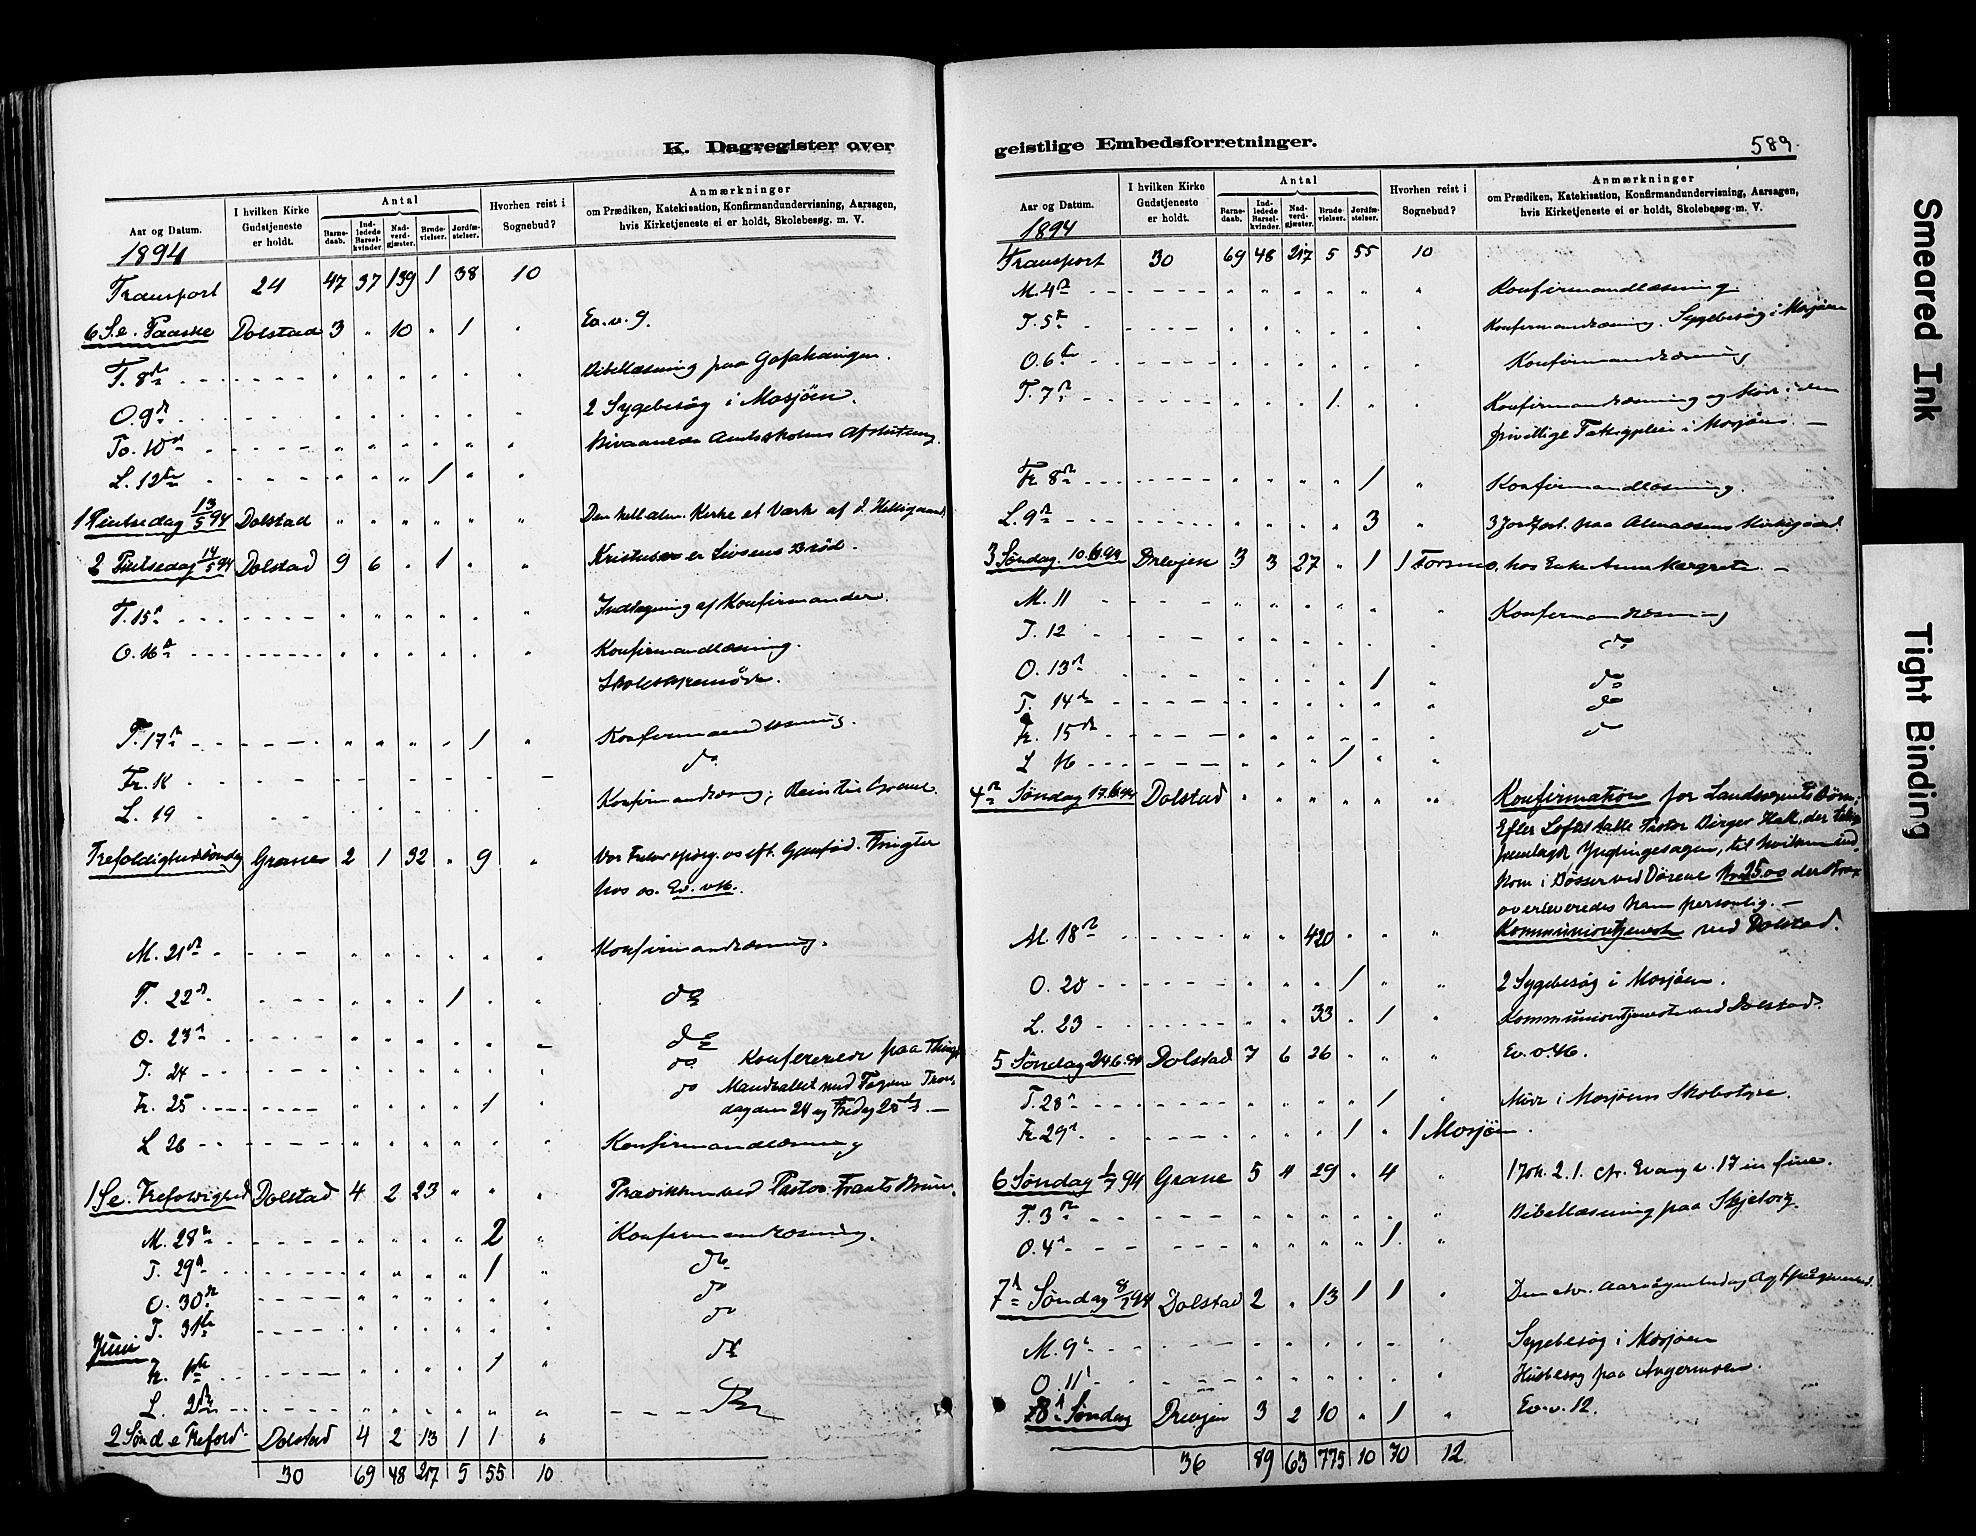 K. Dagregister over
Aar og Datum. I hvilken Kirke Gudstjeneste er holdt. Antal Barnedaab. Indledede Barselkvinder. Nadverdgjæster. Brudevielser. Jordfæstelser. Hvorhen reist i Sognebud? Anmærkninger om Prædiken, Katekisation, Konfirmandundervisning, Aarsagen, hvis Kirketjeneste ei er holdt, Skolebesøg. m. V.
1894
Transport 24 47 37 139 1 38 10
6 S. e. Paaske Dolstad 3 " 10 " 1 " Ev. v. 9.
T. 8de Bibellæsning paa
O. 9de 2 Sygebesøg i Mosjøen.
To. 10de Bivaanede Amtsskolens Afslutning.
L. 12te 1
1 Pintsedag 13/5 94 Dolstad Den hell. alm. Kirke et Værk af d. Helligaand.
2 Pintsedag 14/5 94 Dolstad 9 6 " 1 " " Kristus er Livsens Brød.
T. 15de Indtagning af Konfirmander.
O. 16de Konfirmandlæsning.
T. 17de 1 Konfirmandlæsning.
Fr. 18 do
L. 19 Konfirmandlæsning; Reins til Grane.
Trefoldighedssøndag Grane 2 1 32 " 9 "
hos os. Ev. v. 16.
M. 21de Konfirmandlæsning.
T. 22de 1 do
O. 23de do
T. 24 do Konfererede paa Thing
Fr. 25 1 do Mandtallet med Fogden Tors-
dag den 24 og Fredag 25de
L 26 Konfirmandlæsning
1 S e. Trefoldighed Dolstad 4 2 23 " " " Prædiken ved Pastor Frants Bruun.
M. 28de 2 Konfirmandlæsning.
T. 29de 1 do
O. 30te do
T. 31te do
Juni
Fr. 1ste 1 do
L. 2den
2 Sønd e Trefold. Dolstad 4 2 13 1 1 "
30 69 48 217 5 55 10
geistlige Embedsforretninger.
589.
Aar og Datum. I hvilken Kirke Gudstjeneste er holdt. Antal Barnedaab. Indledede Barselkvinder. Nadverdgjæster. Brudevielser. Jordfæstelser. Hvorhen reist i Sognebud? Anmærkninger om Prædiken, Katekisation, Konfirmandundervisning, Aarsagen, hvis Kirketjeneste ei er holdt, Skolebesøg. m. V.
1894
Transport 30 69 48 217 5 55 10
M. 4de Konfirmandlæsning.
T. 5te Konfirmandlæsning. Sygebesøg i Mosjøen
O. 6te Konfirmandlæsning
T. 7de 1 Konfirmandlæsning og Møde i den
frivillige Fattigpleie i Mosjøen. –
Fr. 8de 1 Konfirmandlæsning.
L. 9de 3 3 Jordfæst. paa Kirkegaard.
3 Søndag. 10.6.94 Drevjen 3 3 27 " 1 1 Forsmo, hos Enke Anne Margrete. –
M. 11 Konfirmandlæsning
T. 12 do
O. 13de 1 do
T. 14de do
Fr. 15de do
L 16 1
4de Søndag 17.6.94 Dolstad Konfirmation for Landsognets Børn;
Efter Loftet talte Pastor Birger Hall, der
fremlagde Ynglingesagen, til hvilken ind-
kom i Bøsser ved Dørene Kr. 25.00 der strax
overleveredes ham personlig. –
M. 18de 420 Kommuniontjeneste ved Dolstad.
O. 20 1 2 Sygebesøg i Mosjøen.
L. 23 33 1 Kommuniontjeneste ved Dolstad.
5 Søndag 24.6.94 Dolstad 7 6 26 Ev. v. 46.
T. 28de 1 Møde i Mosjøens Skolestyre.
Fr. 29de 1 " 1 Mosjøen.
6 Søndag 1/7 94 Grane 5 4 29 " 4 " 1 Joh. 2. 1. cfr. Evang v. 17 in fine.
T. 3de Bibellæsning paa
O. 4de 1
7de Søndag 8/7 94 Dolstad 2 " 13 1 1
M. 9de Sygebesøg i Mosjøen
O. 11te Husbesøg paa Angermoen.
8de Søndag Drevjen 3 2 10 " 1 " Ev. v. 12.
36 89 63 775 10 70 12
Smeared Ink
Tight Binding